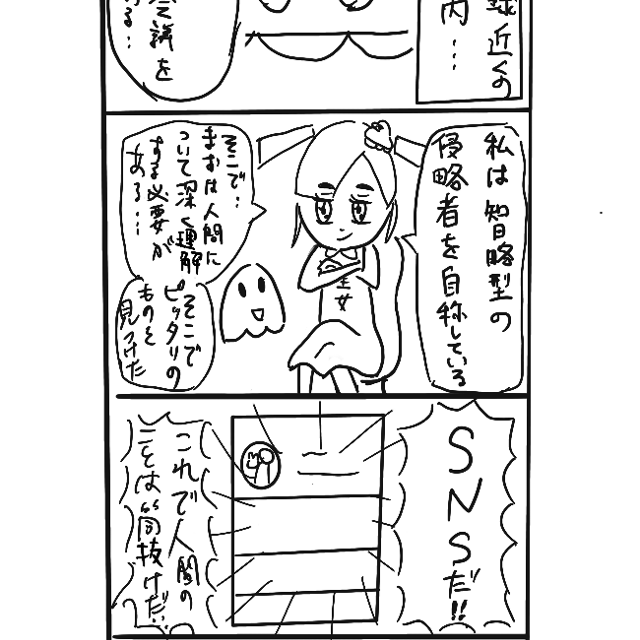 球近くの
内…
会議を
る…
私は知略型の
侵略者を自称している
そこで…
まずは人間に
ついて深く理解
する必要が
ある…
そこで
ピッタリの
ものを
見つけた
王女
SNSだ!!
これで人間の
ことは筒抜けだ…